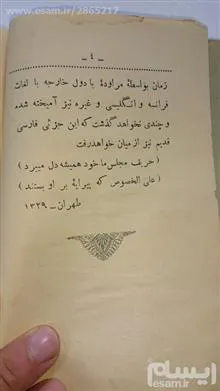 esam.ir/2865217
ـ ٤ ـ
زمان بواسطهٔ مراودهٔ با دول خارجه با لغات
فرانسه و انگلیسی و غیره نیز آمیخته شده
و چندی نخواهد گذشت که این جزئی فارسی
قدیم نیز از میان خواهد رفت
( حریف مجلس ما خود همیشه دل میبرد )
( علی الخصوص که پیرایهٔ بر او بستند )
طهران ـ ۱۳۲۹
ایسام
esam.ir